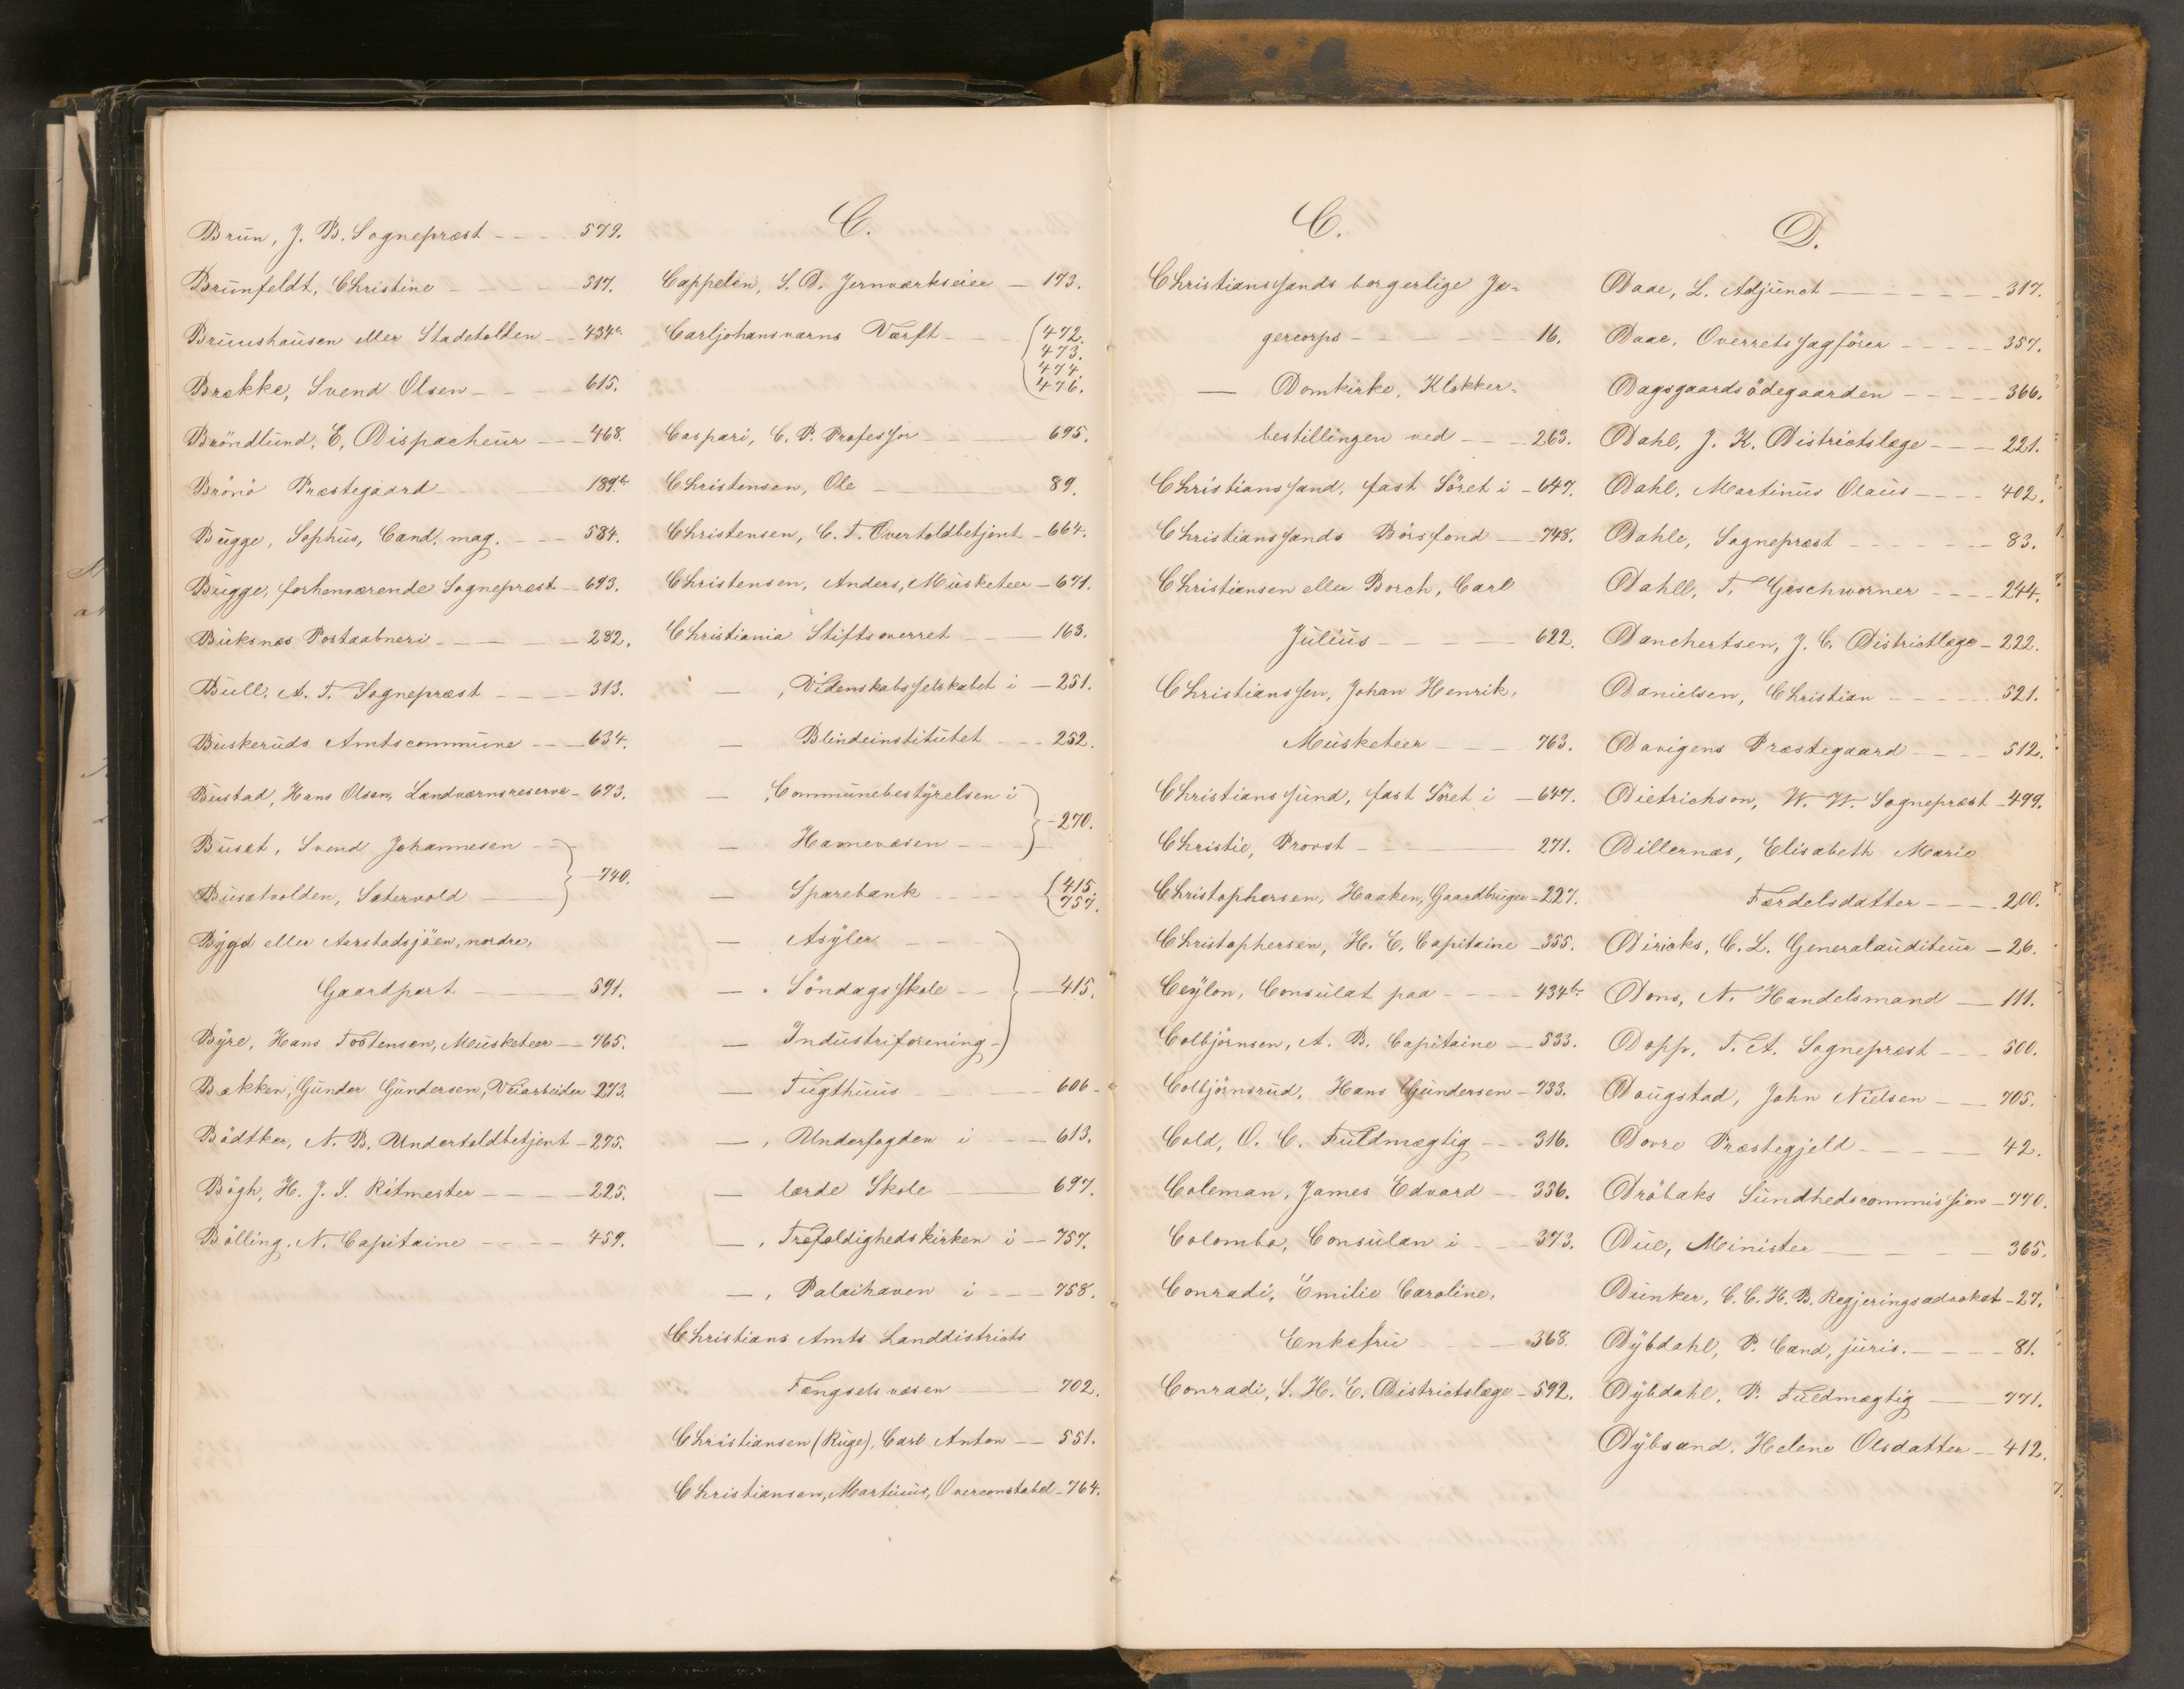 Brun, J. B. Sognepræst 579.
Brunfeldt, Christine 517.
Bruunshausen eller Stadetolden 434a
Brække, Svend Olsen 615.
Bröndlund, E, Dispacheur 468.
Brönö Præstegaard 189b.
Bugge, Sophus, Cand. mag. 584.
Bugge, forhenværende Sognepræst 693.
Buksnæs Postaabneri 282.
Bull, A. T. Sognepræst 313.
Buskeruds Amtscommune 634.
Bustad, Hans Olsen, Landværnsreserve 673.
Busæt, Svend Johannesen
Busætvolden, Sætervold } 740.
Bygd eller Aarstadsjöen, nordre,
Gaardpart 591.
Byre, Hans Tostensen, Musketeer 765.
Bækken, Gunder Gundersen, Veiarbeider 273.
Bödtker, N. B. Undertoldbetjent 275.
Bögh, H. J. S. Ritmester 225.
Bölling, N. Capitaine 459.
C.
Cappelen, S. D. Jernværkseier 173.
Carljohansværns Værft { 472.
473.
474.
476.
Caspari, C. P. Professor 695.
Christensen, Ole 89.
Christensen, C. F. Overtoldbetjent 664.
Christensen, Anders, Musketeer 671.
Christiania Stiftsoverret 163.
— , Videnskabsselskabet i 251.
— Blindeinstitutet 252.
— , Communebestyrelsen i
— Havnevæsen } 270.
— Sparebank { 415.
757.
— Asyler
— Söndagsskole } 415.
— Industriforening
— Tugthuus 606
— , Underfogden i 613.
— lærde Skole 697.
— , Trefoldighedskirken i 757.
— , Palaihaven i 758.
Christians Amts Landdistricts
Fængselsvæsen 702.
Christiansen (Ruge), Carl Anton 551.
Christiansen, Martinius, Overconstabel 764.
C.
Christianssands borgerlige Jæ-
gercorps 16.
— Domkirke, Klokker-
bestillingen ved 263.
Christianssand, fast Söret i 647.
Christianssands Börsfond 748.
Christiansen eller Borch, Carl
Julius 622.
Christianssen, Johan Henrik,
Musketeer 763.
Christianssund, fast Söret i 647.
Christie, Provst 271.
Christophersen, Haaken, Gaardbruger 227.
Christophersen, H. C. Capitaine 355.
Ceylon, Consulat paa 434b.
Colbjörnsen, A. B. Capitaine 533.
Colbjörnsrud, Hans Gundersen 733.
Cold, O. C. Fuldmægtig 316.
Coleman, James Edvard 336.
Colombo, Consulan i 373.
Conradi, Emilie Caroline,
Enkefru 368.
Conradi, S. H. C. Districtslæge 592.
D.
Daae, L. Adjunct 317.
Daae, Overretssagförer 357.
Dagsgaardsödegaarden 366.
Dahl, J. K. Districtslæge 221.
Dahl, Martinus Olaus 402.
Dahle, Sognepræst 83.
Dahll, T. Geschworner 244.
Danchertsen, J. C. Districtlæge 222.
Danielsen, Christian 521.
Davigens Præstegaard 512.
Dietrichson, W. W. Sognepræst 499.
Dillernæs, Elisabeth Marie
Færdelsdatter 200.
Diricks, C. L. Generalauditeur 26.
Dons, N. Handelsmand 111.
Dopp, T. A. Sognepræst 500.
Dougstad, John Nielsen 705.
Dovre Præstegjeld 42.
Dröbaks Sundhedscommission 770.
Due, Minister 365.
Dunker, C. C. H. B. Regjeringsadvokat 27.
Dybdahl, P. Cand, juris. 81.
Dybdahl, P. Fuldmægtig 771.
Dybsand, Helene Olsdatter 412.